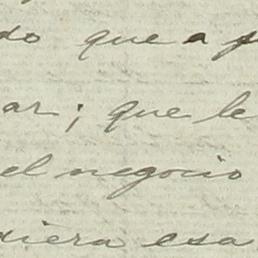 do que a p
ar; que le
el negocio
diera esa